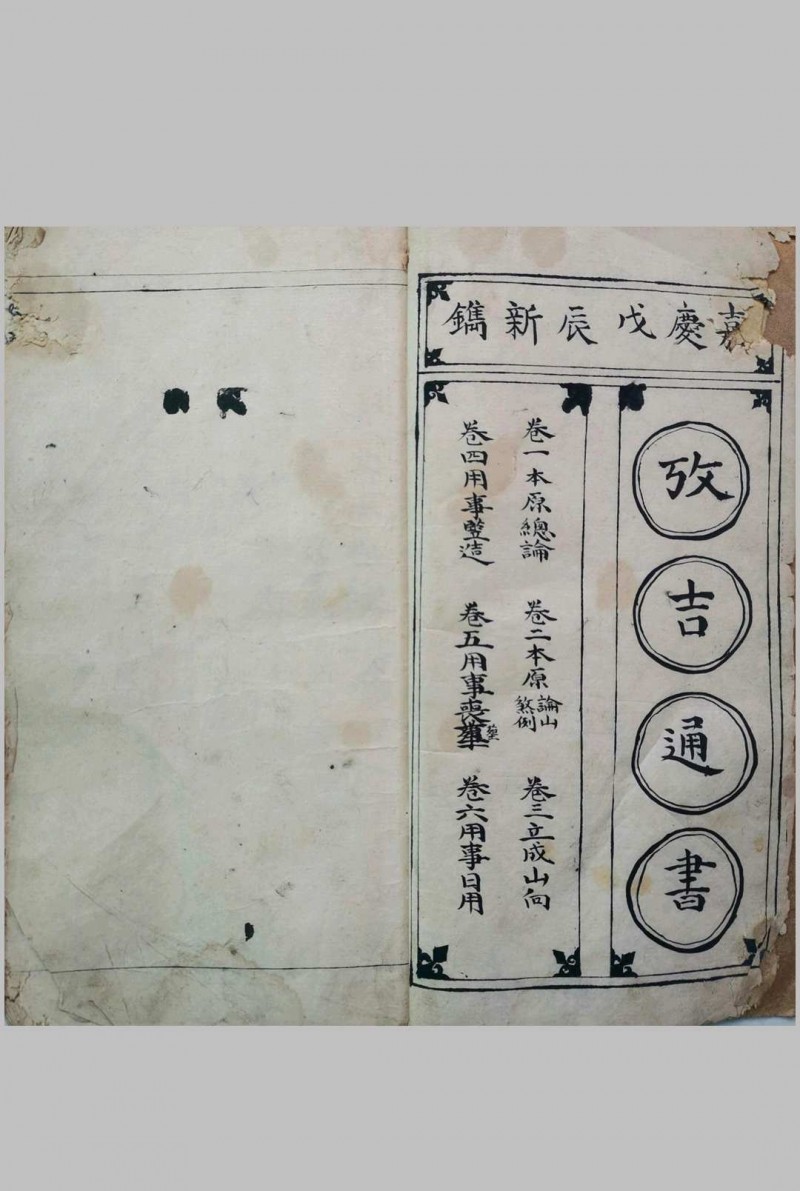 嘉慶戊辰新鐫
攷吉通書
卷一本原總論 卷二本原論山煞例 卷三立成山向
卷四用事竪造 卷五用事喪葬 卷六用事日用